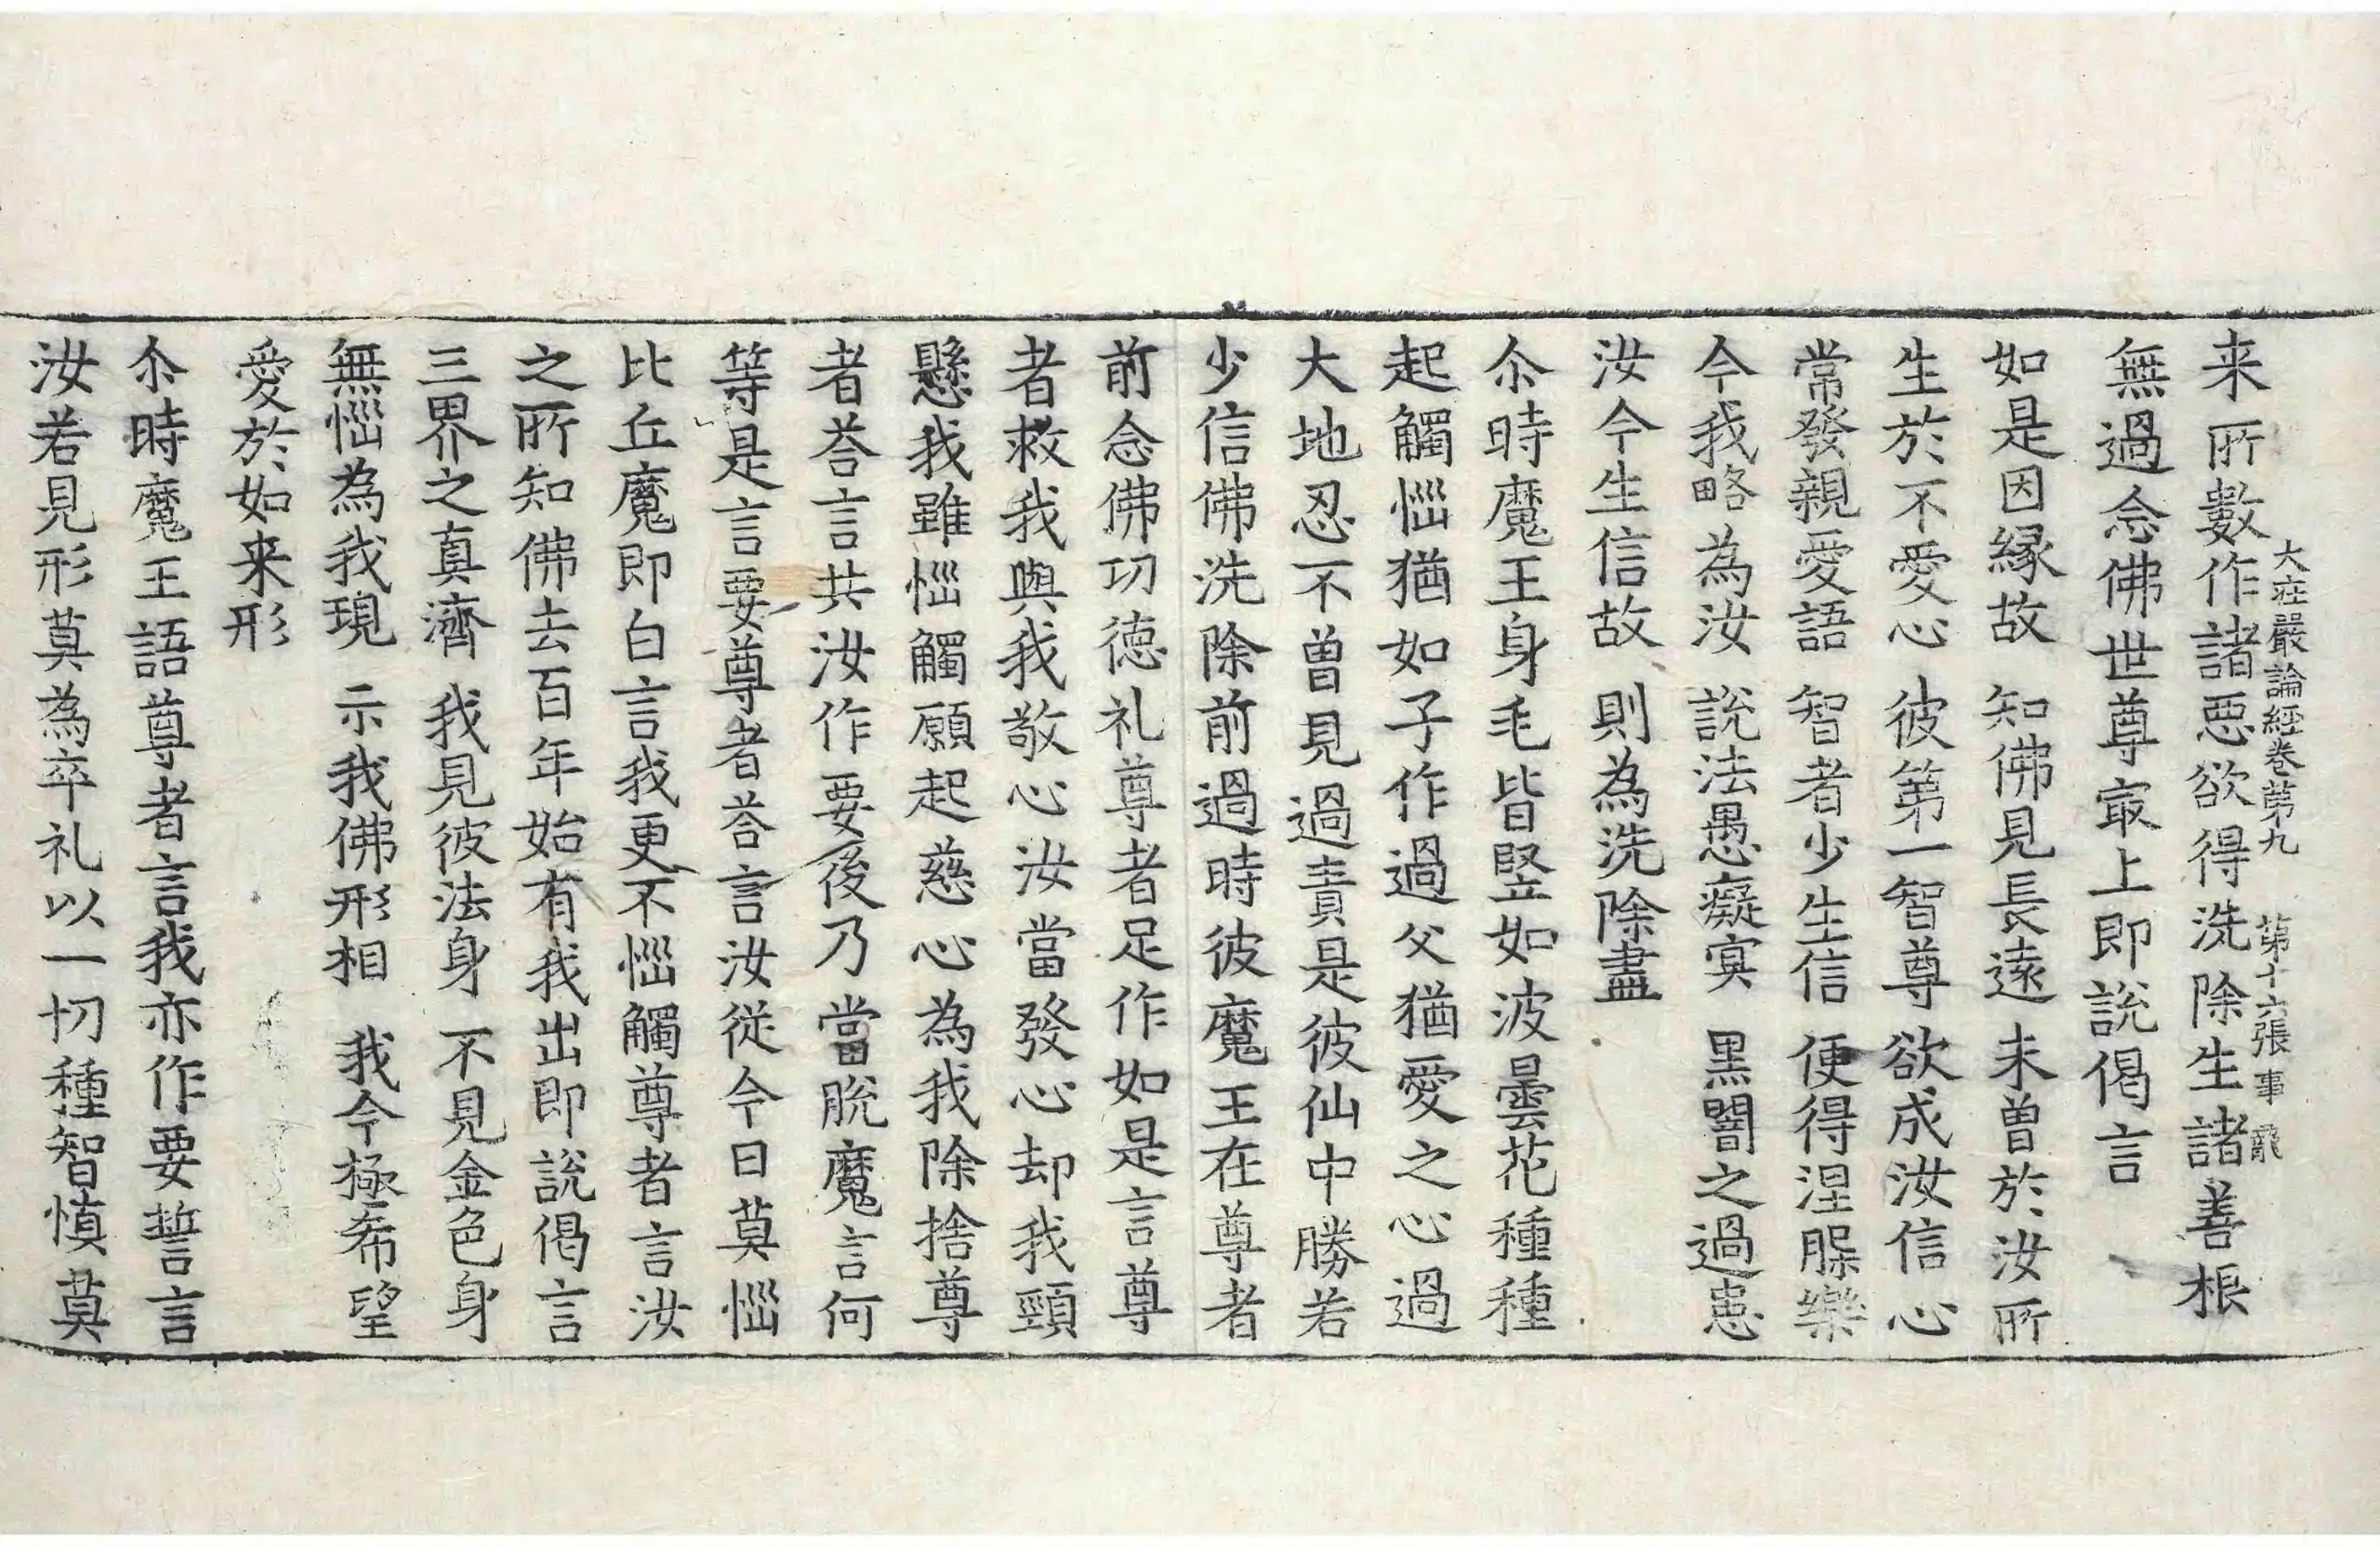 来所數作諸惡欲得洗除生諸善根
大莊嚴論経卷第九　第十六張　事
無過念佛世尊㝡上即説偈言
如是因縁故　知佛見長遠　未曽於汝所
生於不愛心　彼第一智尊　欲成汝信心
常發親愛語　智者少生信　便得涅槃樂
今我略為汝　說法愚癡㝠　黒闇之過患
汝今生信故　則為洗除盡
尒時魔王身毛皆竪如波曇花種種
起觸惱猶如子作過父猶愛之心過
大地忍不曽見過責是彼仙中勝若
少信佛洗除前過時彼魔王在尊者
前念佛功徳礼尊者足作如是言尊
者救我與我敬心汝當發心却我頸
懸我雖惱觸願起慈心為我除捨尊
者荅言共汝作要後乃當脫魔言何
等是言要尊者荅言汝從今日莫惱
比丘魔即白言我更不惱觸尊者言汝
之所知佛去百年始有我出即說偈言
三界之真濟　我見彼法身　不見金色身
無惱為我現　示我佛形相　我今極希望
愛於如来形
尒時魔王語尊者言我亦作要誓言
汝若見形莫為卒礼以一切種智慎莫